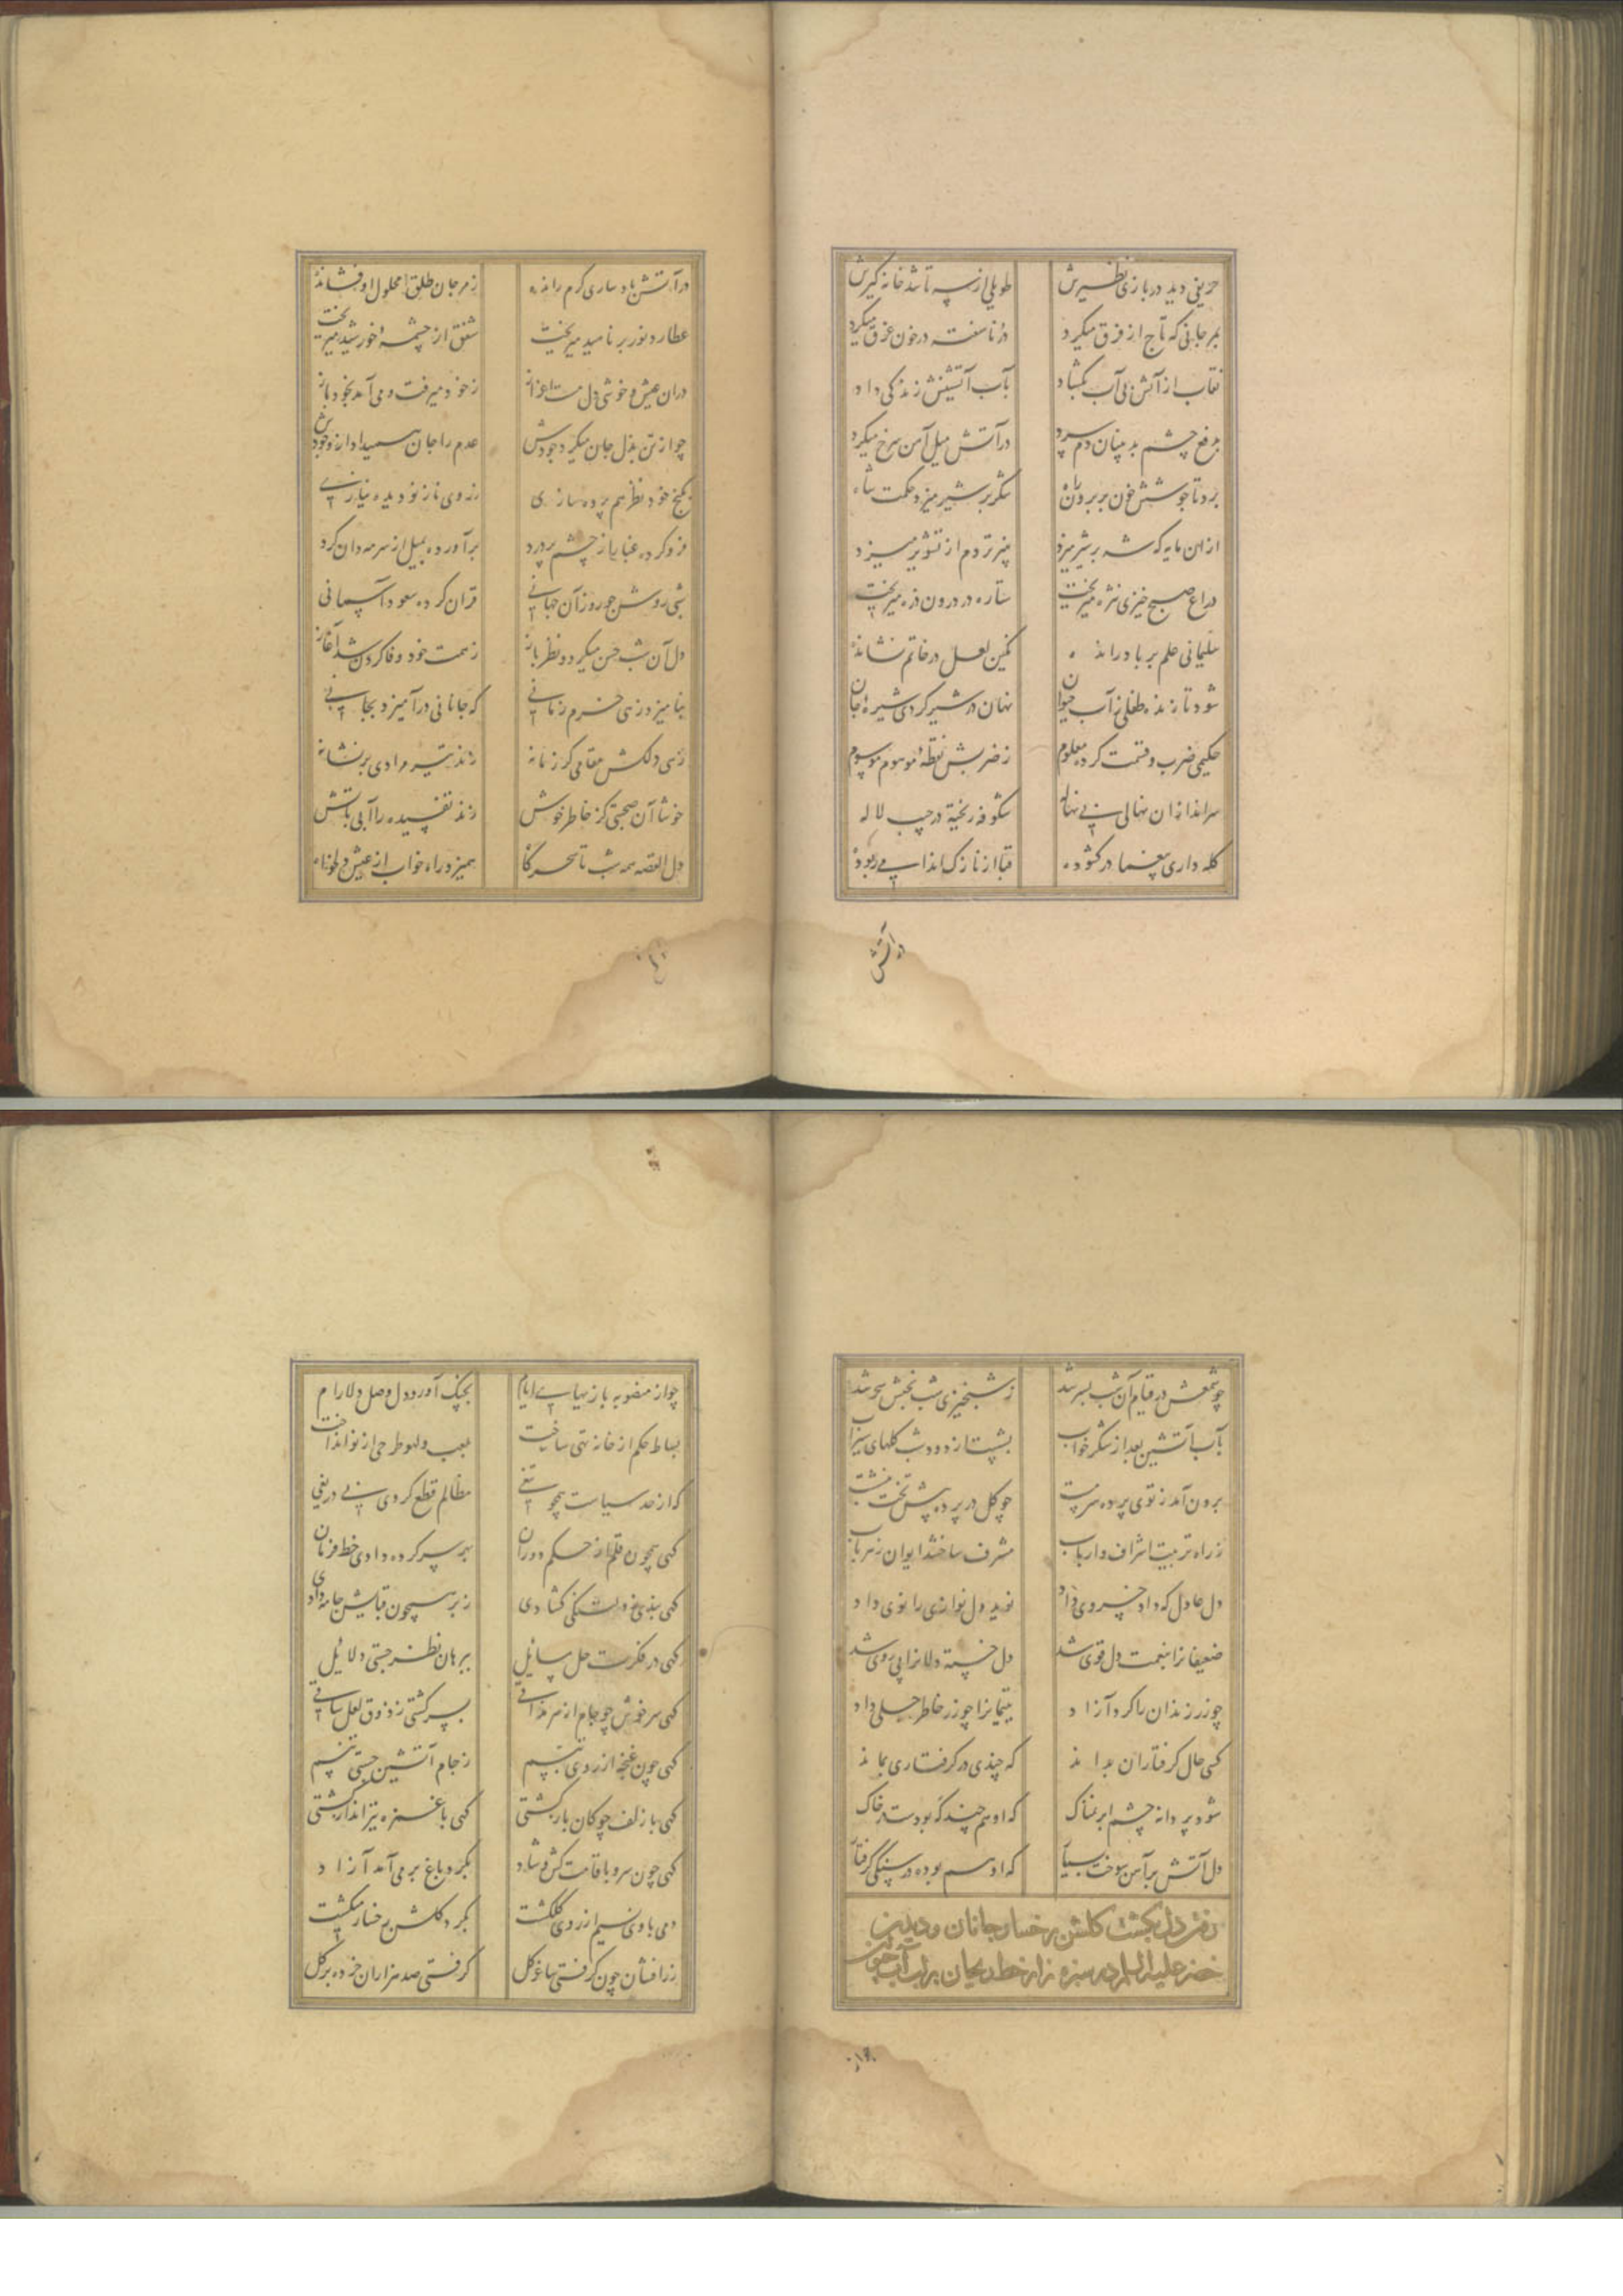 حریفی دید در بازی نظیرش طویلی از سه تا شد خانه گیرش
بمرجانی که تاج از فرق میکرد در ناسفته در خون غرق میکرد
نقاب از آتش بی آب بگشاد بآب آتشینش زندگی داد
بدفع چشم بد پنان دم سرد در آتش میل آهن سرخ میکرد
برد تا جوشش خون بر برون راه شکر بر شیر میزد حکمت شاه
ازان مایه که شه بر شیر میزد پنیر تر دم از تنویر میزد
در اغ صبح خیزی نژه میریخت ستاره در درون ذره میریخت
سلیمانی علم بر باد رانده نگین لعل در خاتم نشانده
شود تا زنده طفلی ز آب حیوان نهان در شیر کردی شیره جان
حکیمی ضرب و قسمت کرده معلوم ز ضربش نقطه موهوم موسوم
سرانداز ان نهالی بی نهاله شکوفه ریخته در جیب لاله
کله داری بیغما در گشوده قبا از نازک اندامی ربوده
در آتش
در آتش باد ساری گرم رانده ز مرجان طلق محلول او فشانده
عطارد نور بر ناهید میریخت شفق از چشمه خورشید میریخت
دران عیش و خوشی دل مست اعزاز ز خود میرفت و می آمد بخود باز
چو از تن بذل جان میکرد جودش عدم را جان همیداد از وجودش
بکنج خود نظر هم پرده سازی ز روی ناز نو دیده نیازی
فرو کرده غباریا ز چشم پر درد برآورده بمیل از سرمه دان گرد
شبی روشن چو روز آن جهانی قران کرده سعود آسمانی
دل آن شب حسن میکرد و نظر باز ز همت خود وفا کردن شد آغاز
بنامیزد زهی خرم زمانی که جانانی درآمیزد بجانی
زهی دلکش مقامی کز زمانه زند تیر مرادی بر نشانه
خوشا آن صحبتی کز خاطر خوش زند تفسیده را آبی بر آتش
دل القصه همه شب تا سحرگاه همیزد راه خواب از عیش دلخواه
چو شمعش در قیام آن شب بسر شد ز شبخیزی شب بخش سحر شد
بآب آتشین بعد از شکر خواب بشست از دود شب گلهای سیراب
برون آمد ز توی پرده سرمست چو گل در پرده پیش تخت بنشست
ز راه تربیت اشراف و ارباب مشرف ساختند ایوان ز هر باب
دل عادل که داد خسروی داد نوید دل نوازی را نوی داد
ضعیفانرا بنعمت دل قوی شد دل خسته دلانرا پی روی شد
چو زر زندانیان را کرد آزاد یتیمانرا چو زر خاطر جلی داد
کسی حال گرفتاران بداند که چندی در گرفتاری بماند
شود پر دانه چشم ابر نمناک که او هم چند گه بودست در خاک
دل آتش بر آهن سوخت بسیار که او هم بوده در سنگی گرفتار
رفتن دل بگشت گلشن رخسار جانان و دیدن
خضر علیه السلام در سبزه زار خط ریحان بر لب آب حیوان
چو از
چو از منصوبه بازیهای ایام بچنگ آورد دل وصل دلارام
بساط حکم از خانه تهی ساخت بلعب و لهو طرحی از نو انداخت
که از حد سیاست همچو تیغی مظالم قطع کردی بی دریغی
گهی همچون قلم از حکم دوران بهر سر کرده دادی خط فرمان
گهی بندی ز دلتنگی گشادی ز بر همچون قبایش جامه دادی
گهی در فکرت حل مسائل ببرهان نظر جستی دلائل
گهی سرخوش چو جام از سر مذاقی بسر گشتی ز ذوق لعل ساقی
گهی چون غنچه از روی تبسم ز جام آتشین جستی تنسم
گهی با زلف چوگان باز گشتی گهی با غمزه تیرانداز گشتی
گهی چون سرو با قامت کش و شاد بگرد باغ بر می آمد آزاد
دمی با وی نسیم از روی گلگشت بگرد گلشن رخسار میگشت
زرافشان چون گرفتی ساغر گل گرفتی صد هزاران خرده بر گل